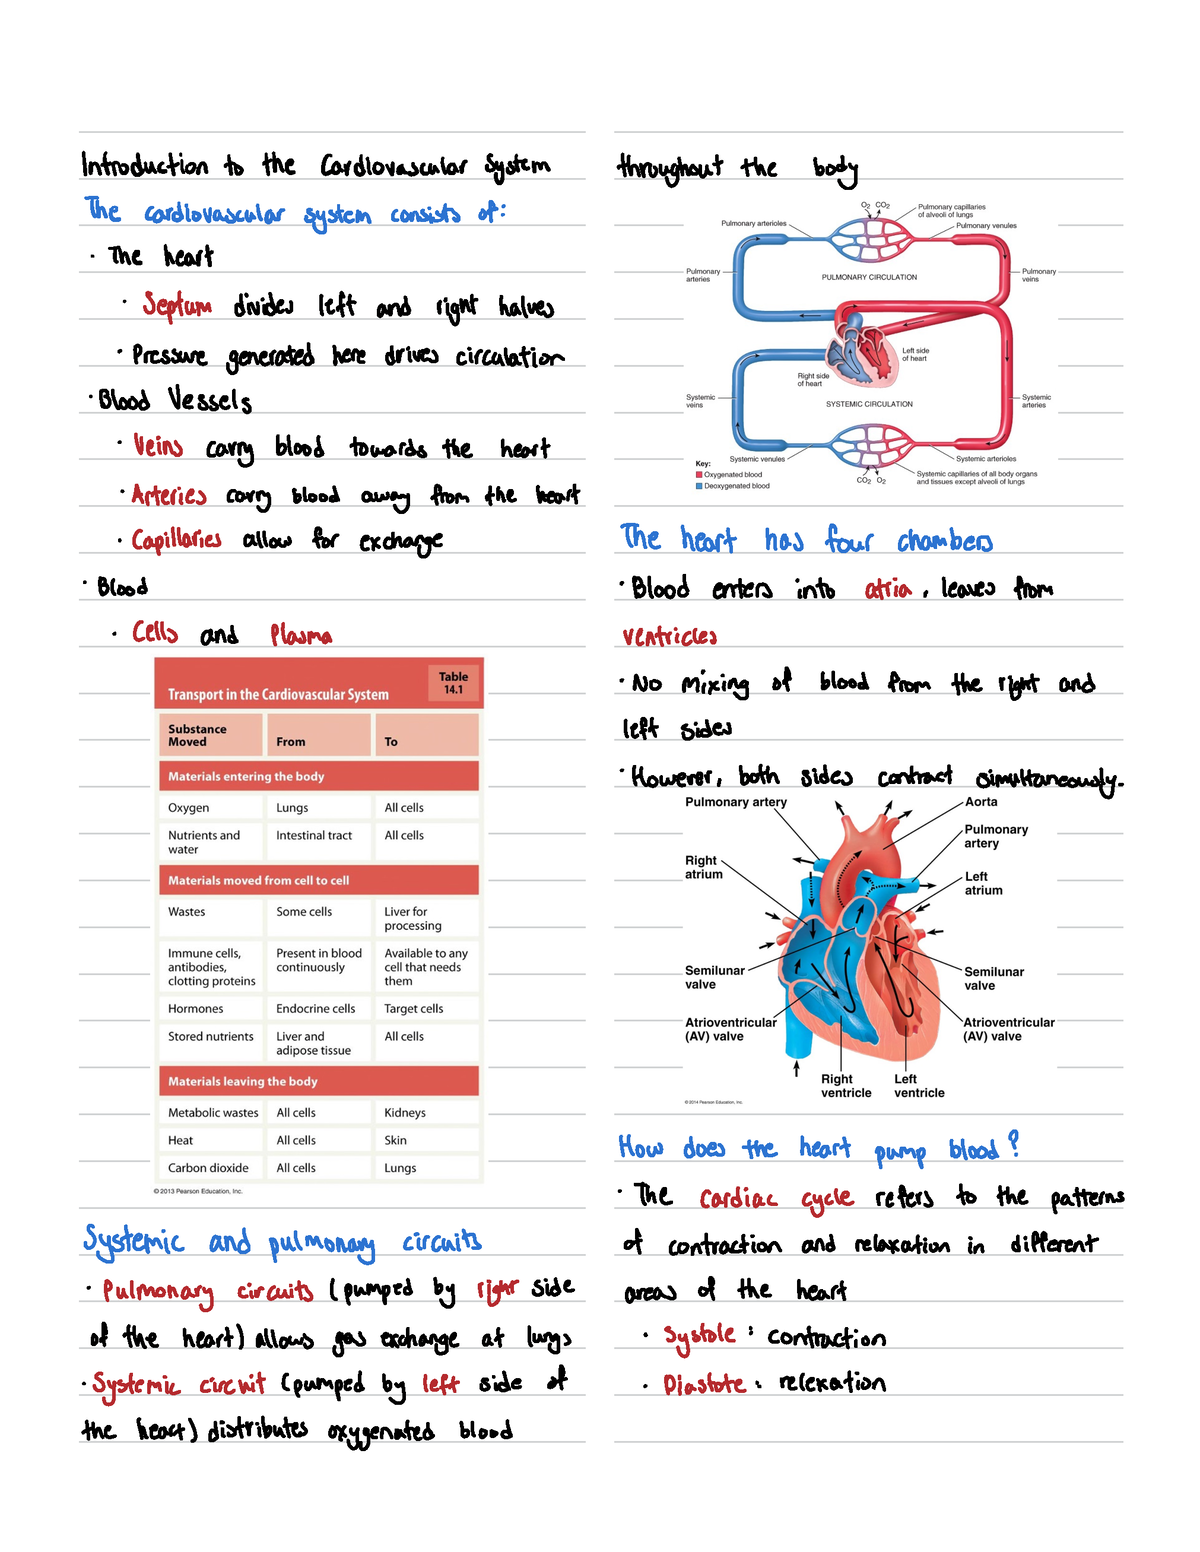 Introduction to the Cardiovascular System
The cardiovascular system consists of:
· The heart
· Septum divides left and right halves
· Pressure generated here drives circulation
· Blood Vessels
· Veins carry blood towards the heart
· Arteries carry blood away from the heart
· Capillaries allow for exchange
· Blood
· Cells and Plasma
Transport in the Cardiovascular System
Table
14.1
Substance
Moved
From
To
Materials entering the body
Oxygen
Lungs
All cells
Nutrients and
water
Intestinal tract
All cells
Materials moved from cell to cell
Wastes
Some cells
Liver for
processing
Immune cells,
antibodies,
clotting proteins
Present in blood
continuously
Available to any
cell that needs
them
Hormones
Endocrine cells
Target cells
Stored nutrients
Liver and
adipose tissue
All cells
Materials leaving the body
Metabolic wastes
All cells
Kidneys
Heat
All cells
Skin
Carbon dioxide
All cells
Lungs
© 2013 Pearson Education, Inc.
Systemic and pulmonary circuits
· Pulmonary circuits (pumped by right side
of the heart) allows gas exchange at lungs
· Systemic circuit (pumped by left side of
the heart) distributes oxygenated blood
throughout the body
O2 CO2
Pulmonary capillaries
of alveoli of lungs
Pulmonary arterioles
Pulmonary venules
Pulmonary
arteries
PULMONARY CIRCULATION
Pulmonary
veins
Left side
of heart
Right side
of heart
Systemic
veins
SYSTEMIC CIRCULATION
Systemic
arteries
Systemic venules
Systemic arterioles
Key:
Oxygenated blood
Deoxygenated blood
CO2 O2
Systemic capillaries of all body organs
and tissues except alveoli of lungs
The heart has four chambers
· Blood enters into atria, leaves from
ventricles
· No mixing of blood from the right and
left sides
· However, both sides contract simultaneously.
Pulmonary artery
Aorta
Pulmonary
artery
Right
atrium
Left
atrium
Semilunar
valve
Semilunar
valve
Atrioventricular
(AV) valve
Atrioventricular
(AV) valve
Right
ventricle
Left
ventricle
© 2014 Pearson Education, Inc.
How does the heart pump blood?
· The cardiac cycle refers to the patterns
of contraction and relaxation in different
areas of the heart
· Systole: contraction
· Diastote: relexation